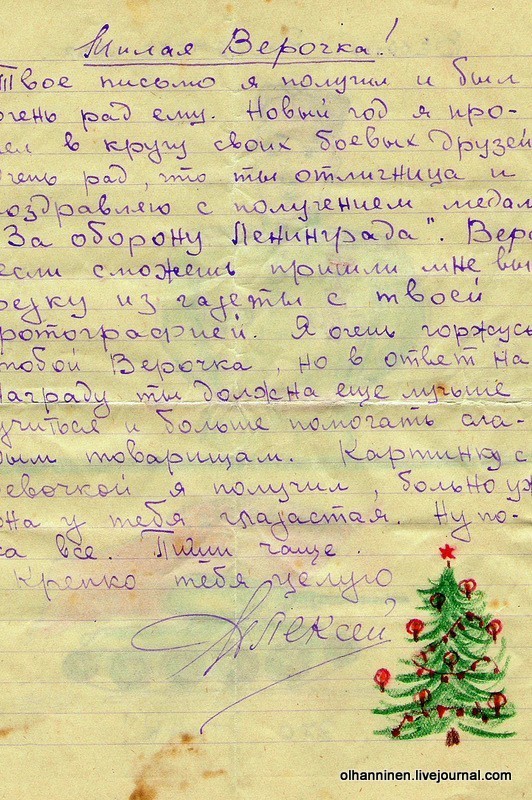 Милая Верочка!
Твое письмо я получил и был
очень рад ему. Новый год я про-
ел в кругу своих боевых друзей
очень рад, что ты отличница и
оздравляю с получением медал
"За оборону Ленинграда". Веро
если сможешь пришли мне вы
резку из газеты с твоей
фотографией. Я очень горжусь
тобой Верочка, но в ответ на
награду ты должна еще лучше
учиться и больше помогать сла-
бым товарищам. Картинку с
девочкой я получил, больно уж
она у тебя глазастая. Ну по-
ка все. Пиши чаще.
Крепко тебя целую
Алексей
olhanninen.livejournal.com